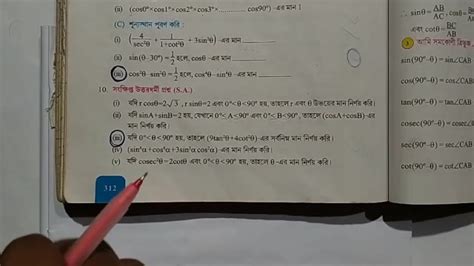 (ii) (cos0°×cos1°×cos2°×cos3°×.................cos90°) -এর মান
(C) শূন্যস্থান পূরণ করি :
(i) (4/sec²θ + 1/1+cot²θ + 3sin²θ) -এর মান
(ii) sin(θ-30°)=1/2 হলে, cosθ -এর মান
(iii) cos²θ - sin²θ=1/2 হলে, cos⁴θ -sin⁴θ -এর মান
10. সংক্ষিপ্ত উত্তরধর্মী প্রশ্ন (S.A.)
(i) যদি r cosθ=2√3, r sinθ=2 এবং 0°<θ<90° হয়, তাহলে r এবং θ উভয়ের মান নির্ণয় করি।
(ii) যদি sinA+sinB=2 হয়, যেখানে 0°≤A≤90° এবং 0°≤B≤90°, তাহলে (cosA+cosB) -এর
মান নির্ণয় করি।
(iii) যদি 0°<θ<90° হয়, তাহলে (9tan²θ+4cot²θ) -এর সর্বনিম্ন মান নির্ণয় করি।
(iv) (sin⁶α+cos⁶α+3sin²α cos²α) -এর মান নির্ণয় করি।
(v) যদি cosec²θ=2cotθ এবং 0°<θ<90° হয়, তাহলে θ -এর মান নির্ণয় করি।
312
sinθ = AB/AC, cosθ=
এবং cotθ=BC/AB
3 আমি সমকোণী ত্রিভুজ
sin(90°-θ) = sin∠CAB
cos(90°-θ) = cos∠CAB
tan(90°-θ) = tan∠CAB
cosec(90°-θ) =
sec(90°-θ) = sec∠CAB
cot(90°-θ) = cot∠CAB